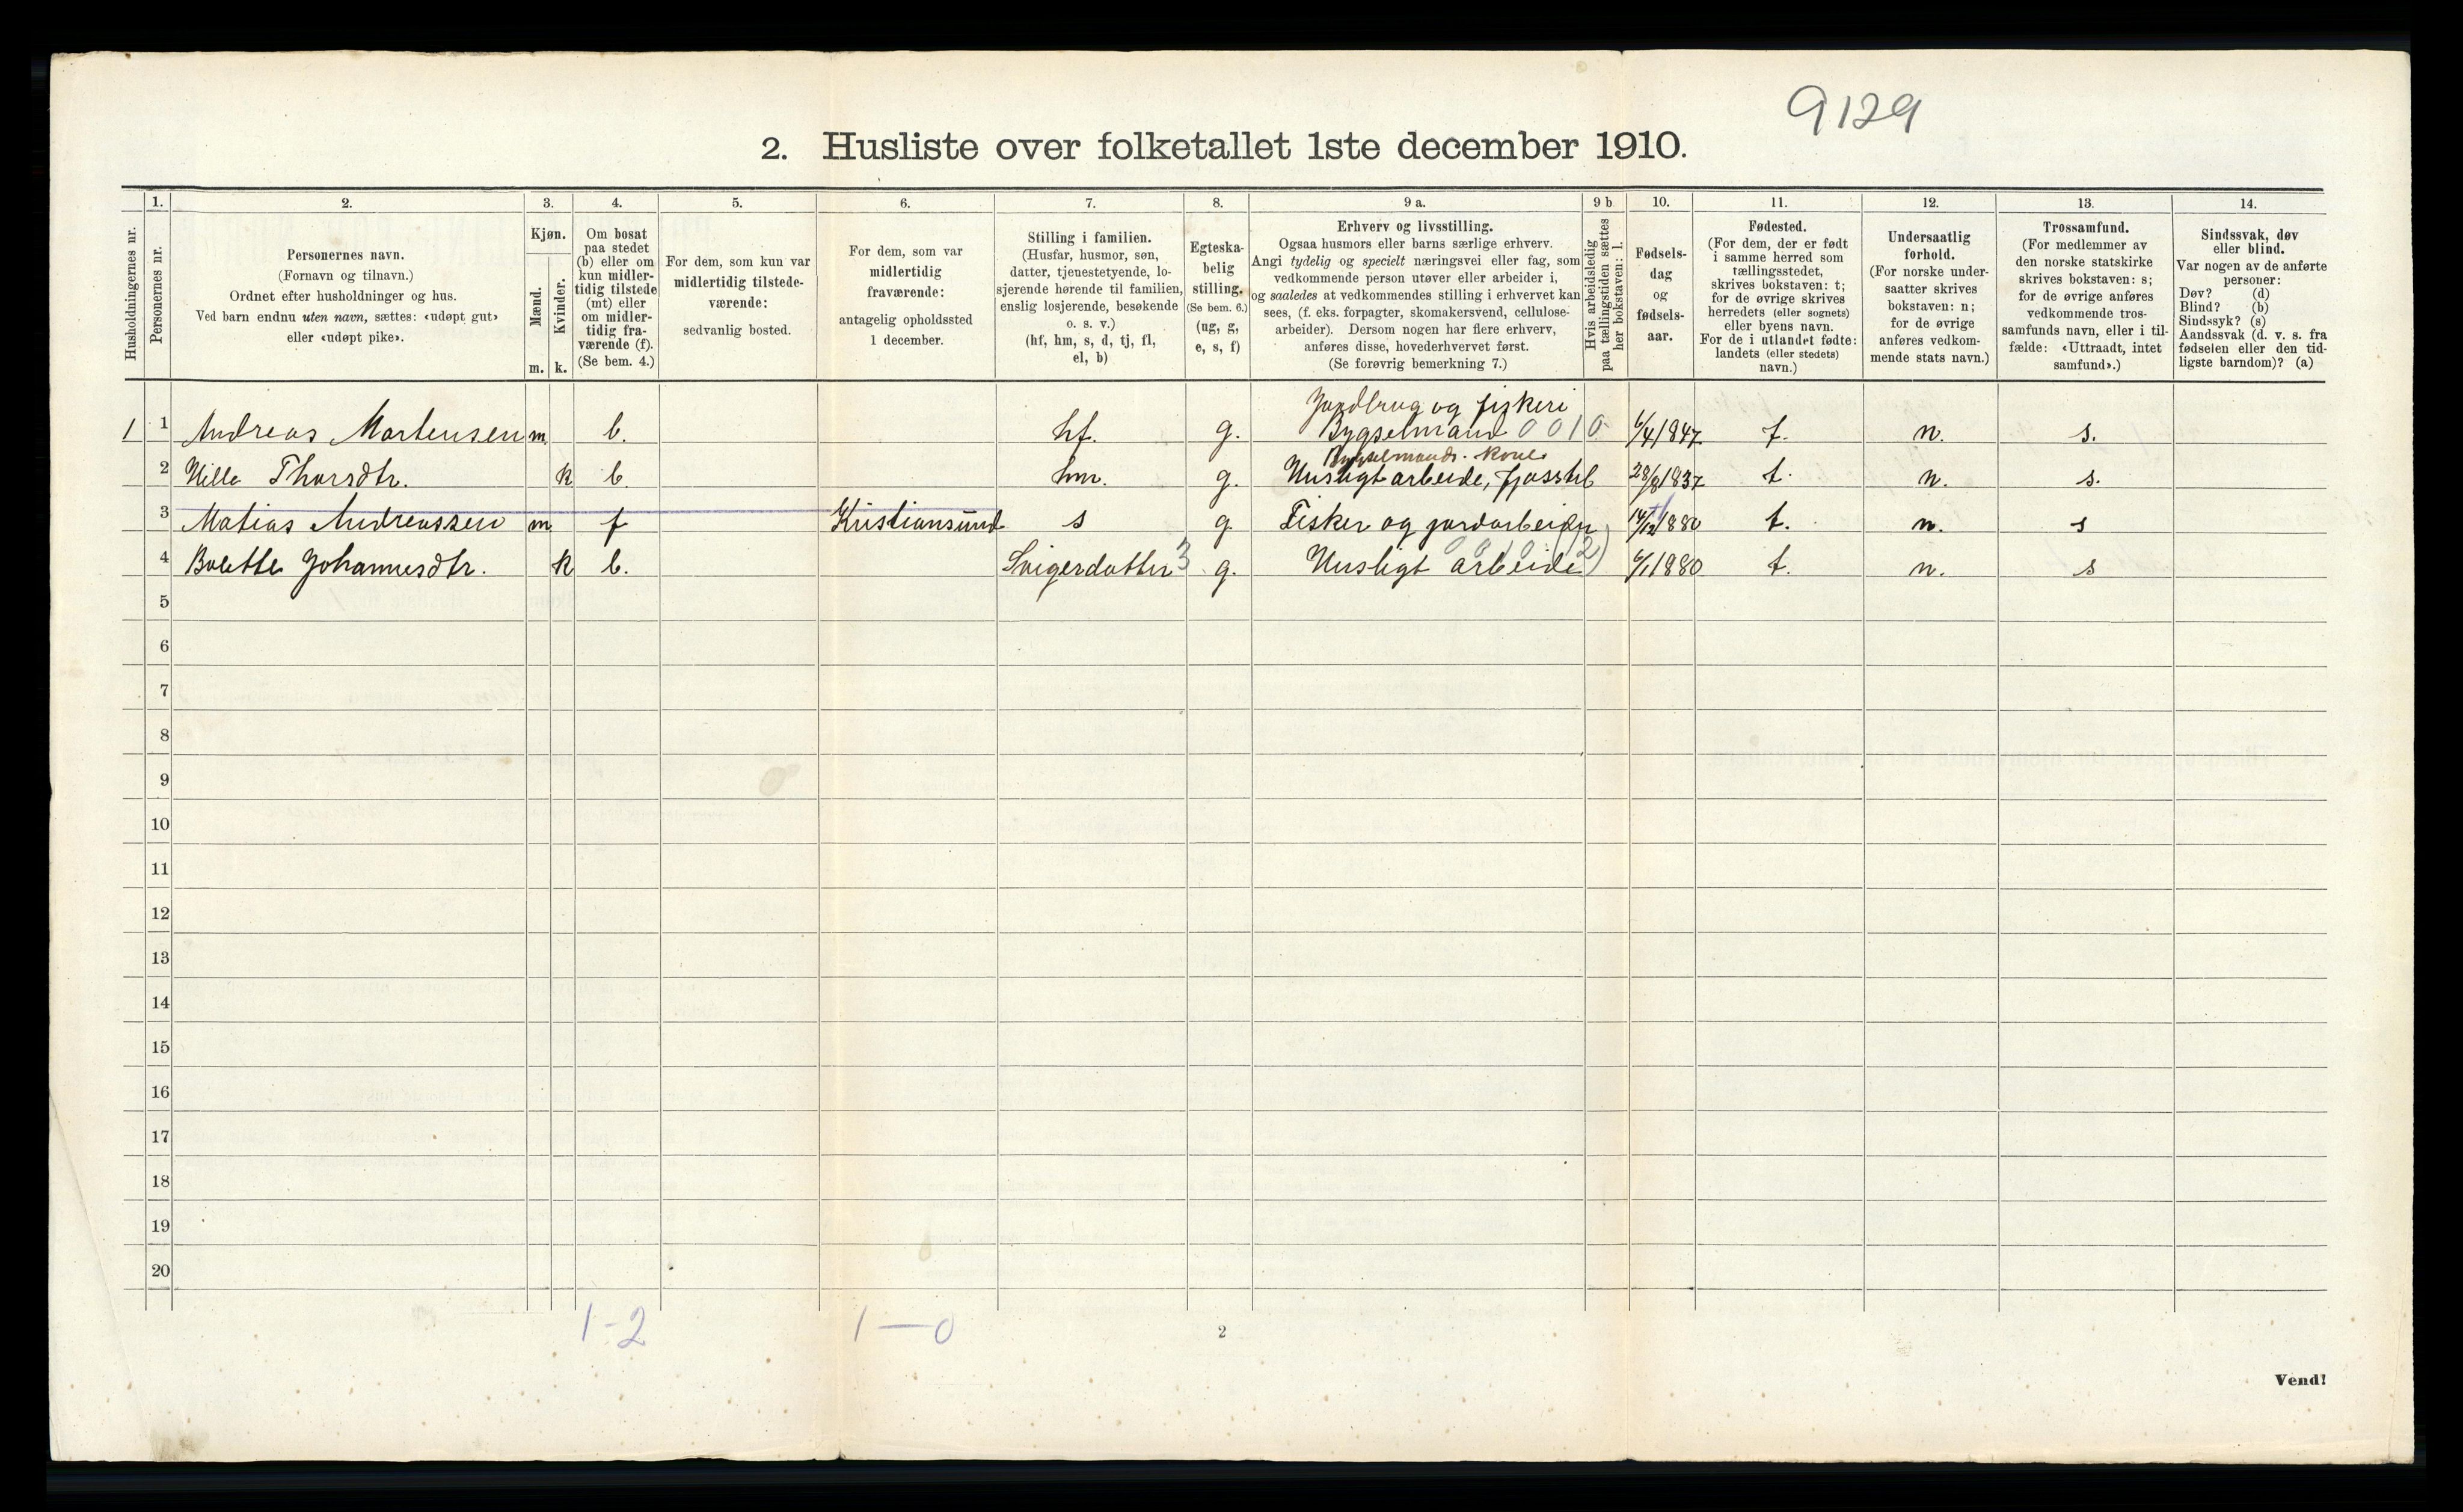 9129
2. Husliste over folketallet 1ste december 1910.
Husholdningernes nr.
1.
Personernes nr.
2.
Personernes navn.
(Fornavn og tilnavn.)
Ordnet efter husholdninger og hus.
Ved barn endnu uten navn, sættes: «udøpt gut»
eller «udøpt pike».
3.
Kjøn.
Mænd.
Kvinder.
m. k.
4.
Om bosat
paa stedet
(b) eller om
kun midler-
tidig tilstede
(mt) eller
om midler-
tidig fra-
værende (f).
(Se bem. 4.)
5.
For dem, som kun var
midlertidig tilstede-
værende:
sedvanlig bosted.
6.
For dem, som var
midlertidig
fraværende:
antagelig opholdssted
1 december.
7.
Stilling i familien.
(Husfar, husmor, søn,
datter, tjenestetyende, lo-
sjerende hørende til familien,
enslig losjerende, besøkende
o. s. v.)
(hf, hm, s, d, tj, fl,
el, b)
8.
Egteska-
belig
stilling.
(Se bem. 6.)
(ug, g,
e, s, f)
9 a.
Erhverv og livsstilling.
Ogsaa husmors eller barns særlige erhverv.
Angi tydelig og specielt næringsvei eller fag, som
vedkommende person utøver eller arbeider i,
og saaledes at vedkommendes stilling i erhvervet kan
sees, (f. eks. forpagter, skomakersvend, cellulose-
arbeider). Dersom nogen har flere erhverv,
anføres disse, hovederhvervet først.
(Se forøvrig bemerkning 7.)
9 b
Hvis arbeidsledig
paa tællingstiden sættes
her bokstaven: l.
10.
Fødsels-
dag
og
fødsels-
aar.
11.
Fødested.
(For dem, der er født
i samme herred som
tællingsstedet,
skrives bokstaven: t;
for de øvrige skrives
herredets (eller sognets)
eller byens navn.
For de i utlandet fødte:
landets (eller stedets)
navn.)
12.
Undersaatlig
forhold.
(For norske under-
saatter skrives
bokstaven: n;
for de øvrige
anføres vedkom-
mende stats navn.)
13.
Trossamfund.
(For medlemmer av
den norske statskirke
skrives bokstaven: s;
for de øvrige anføres
vedkommende tros-
samfunds navn, eller i til-
fælde: «Uttraadt, intet
samfund».)
14.
Sindssvak, døv
eller blind.
Var nogen av de anførte
personer:
Døv? (d)
Blind? (b)
Sindssyk? (s)
Aandssvak (d. v. s. fra
fødselen eller den tid-
ligste barndom)? (a)
Jordbrug og fiskeri
1 1 Andreas Mortensen m. b. hf. g. Bygselmand 0010 6/4 1847 t. n. s.
Bygselmands. Kone
2 Nille Thorsdtr. k b. hm. g. Husligt arbeide, fjosstel 28/8 1837 t. n. s.
3 Matias Andreassen m f Kristiansund s g Fisker og jordarbeider 14/12 1880 t. n. s
4 Bolette Johannesdtr. k b. Svigerdatter 3 g. Husligt arbeide 6/1 1880 t. n. s
5
6
7
8
9
10
11
12
13
14
15
16
17
18
19
20
1-2 1-0
2
Vend!